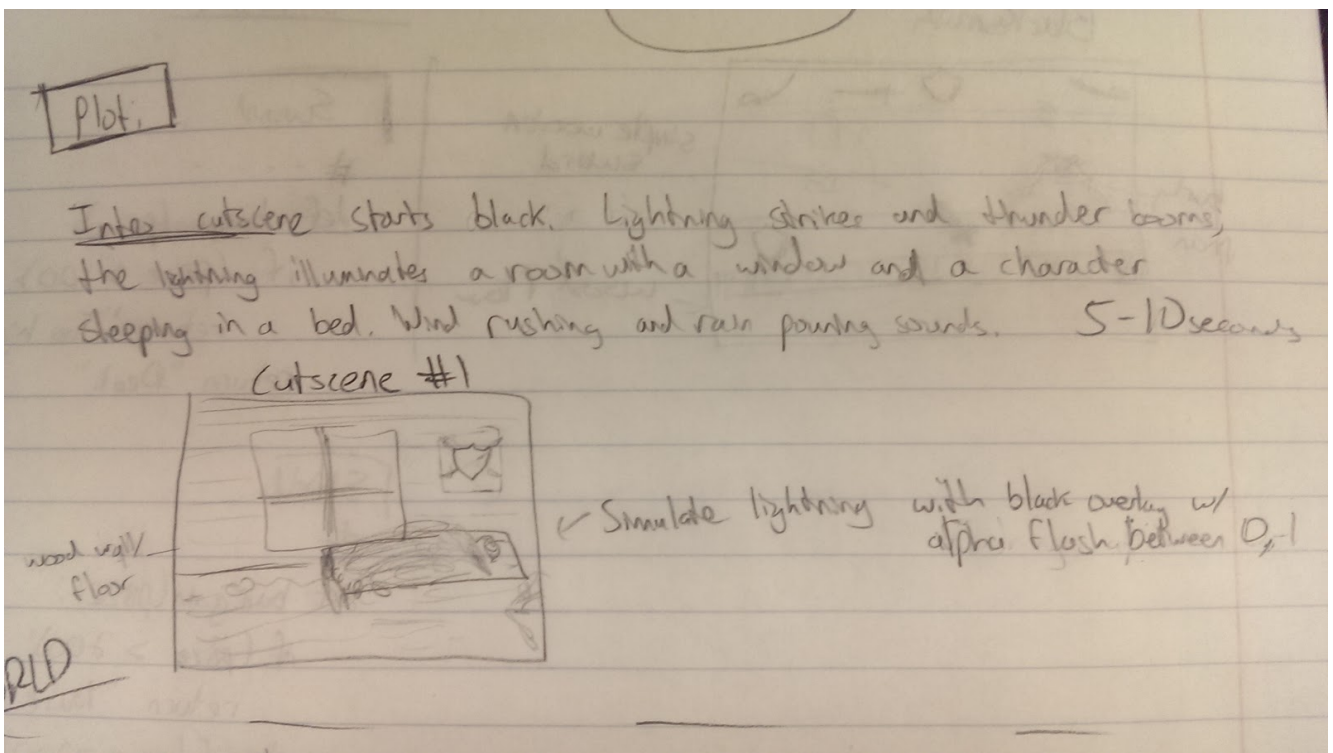 Plot.
Inter cutscene starts black. Lightning strikes and thunder booms,
the lightning illuminates a room with a window and a character
sleeping in a bed. Wind rushing and rain pouring sounds. 5-10 seconds
Cutscene #1
Simulate lightning with black overlay w/
alpha flash between 0,1
wood wall
floor
RLD